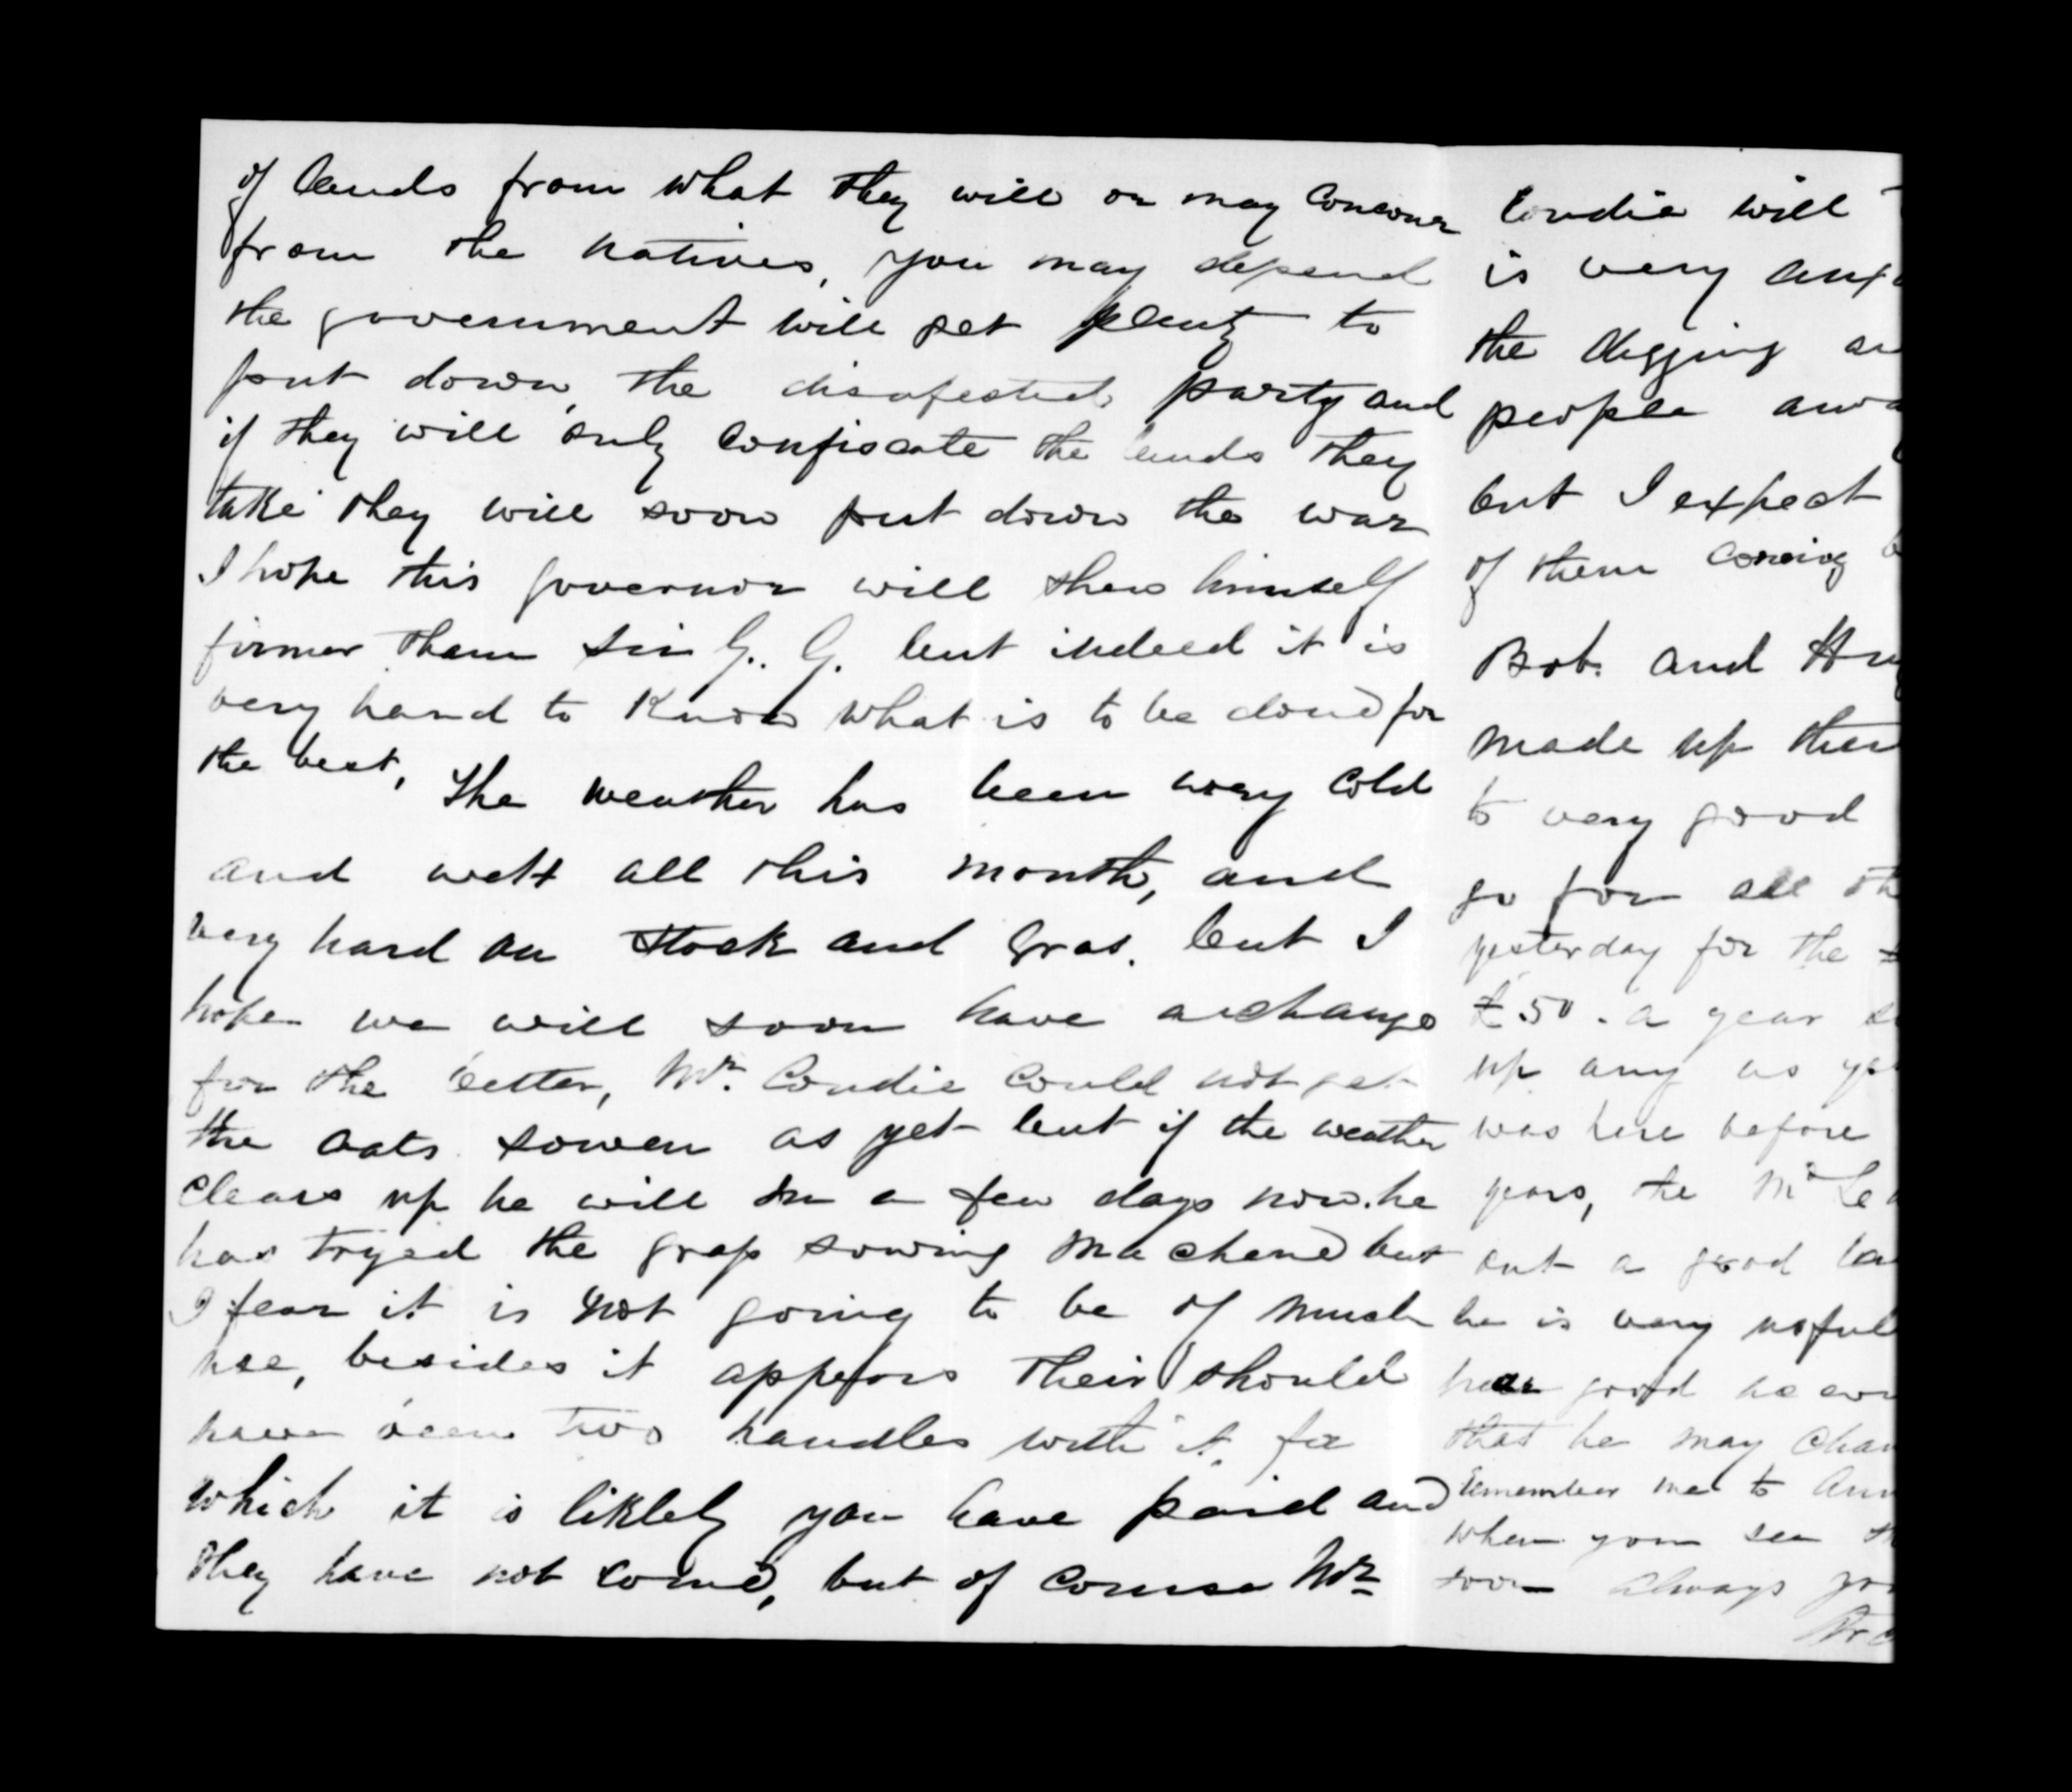 of lands from what they will or may Concour
from the natives, you may depend
the government will get plenty to
put down, the disafected party and
if they will only Confiscate the lands they
take they will soon put down the war
I hope this governor will shew himself
firmer than Sir G. G. but indeed it is
very hard to Know what is to be done for
the best, The weather has been very Cold
and wett all this month, and
very hard on Stock and Gras. but I
hope we will soon have a change
for the better, Mr. Condie Could not get
the oats sowen as yet but if the weather
Clears up he will in a few days now. he
has tryed the grass sowing Machene but
I fear it is not going to be of much
use, besides it appears their should
have been two handles with it, for
which it is liklely you have paid and
they have not come, but of course Mr
Condie will
is very
the digging
people
but I expect
of them coming
Bob. and
made up
to very good
go for all
yesterday for the
£50. a year
up any as
was here before
years, the
out a good
he is very usful
good he
that he may
remember me to
when you see
soon always